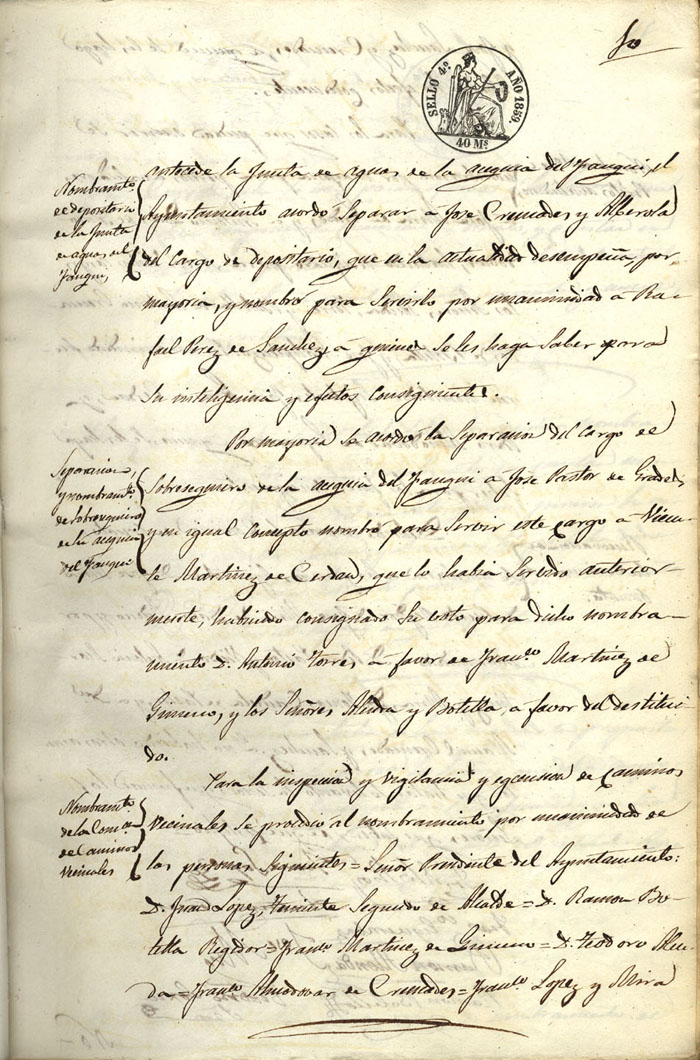 50
SELLO 4º AÑO 1859.
40 Ms
Nombramto
de depositario
de la Junta
de aguas del
Fauqui,
antecede la Junta de aguas de la acequia del Fauqui, el
Ayuntamiento acordó Separar á Jose Cremades y Alberola
del Cargo de depositario, que en la actualidad desempeña, por
mayoria, y nombró para Servirlo por unanimidad á Ra-
fael Perez de Sanchez, á quienes se les haga Saber para
Su inteligencia y efectos consiguientes.
Separacion
y nombramto
de Sobrecequiero
de la acequia
del Fauqui
Por mayoria se acordó la Separacion del Cargo de
Sobresequiero de la acequia del Fauqui a Jose Pastor de
y en igual Concepto nombró para Servir este Cargo á Vicen-
te Martinez de Cerdan, que lo habia Servido anterior-
mente, habiendo consignado Su voto para dicho nombra-
miento D. Antonio Torres á favor de Franco Martinez de
Gimeno, y los Señores Alzedra y Botella, a favor del destitui-
do.
Nombramto
de la Comon
de Caminos
Vecinales
Para la inspeccion y vigilancia y egecucion de Caminos
Vecinales se procedio al nombramiento por unanimidad de
las personas Siguientes = Señor Presidente del Ayuntamiento:
D. Juan Lopez, Teniente Segundo de Alcalde = D. Ramon Bo-
tella Regidor = Franco Martinez de Gimeno = D. Teodoro
= Franco Almodovar de Cremades = Franco Lopez y Mira